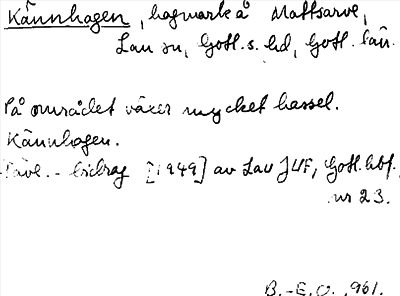 Kännhagen, hagmark å Mattsarve,
Lau sn, Gotl. s. hd, Gotl. län.
På området växer mycket hassel.
Kännhagen.
Tävl.-bidrag [1949] av Lau JUF, Gotl. hbf.
nr 23.
B.-E.O. 1961.